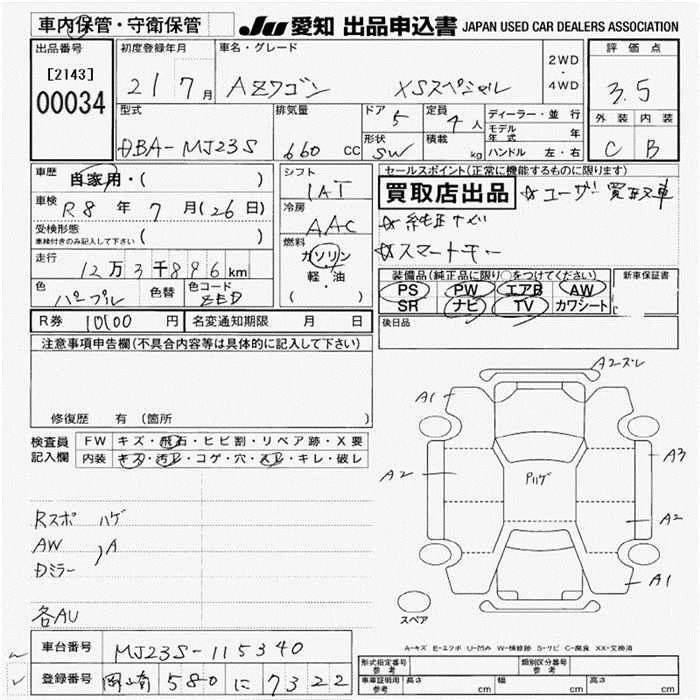 車内保管・守衛保管 JU 愛知 出品申込書 JAPAN USED CAR DEALERS ASSOCIATION
出品番号 初度登録年月 車名・グレード 2WD・4WD 評価点
[2143] 21年7月 AZワゴン XSスペシャル 3.5
00034
型式 排気量 ドア 5 定員 4人 ディーラー・並行 外装 内装
DBA-MJ23S 660cc 形状 SW 積載 kg モデル年式 年 C B
ハンドル 左・右
車歴 自家用・( ) シフト IAT セールスポイント(正常に機能するものに限り)
車検 R8年7月(26日) 冷房 AAC 買取店出品 ☆ユーザー買取車
受検形態 ☆純正ナビ
車検付きのみ記入して下さい ( ) 燃料 ☆スマートキー
走行 12万3千896km ガソリン
軽・油
( )
装備品(純正品に限り○をつけてください) 新車保証書
色 パープル 色替 色コード ZED PS PW エアB AW
SR ナビ TV カワシート
R券 10100円 名変通知期限 月 日 後日品
注意事項申告欄(不具合内容等は具体的に記入して下さい)
修復歴 有 (箇所
検査員記入欄 FW キズ・飛石・ヒビ割・リペア跡・X要
内装 キズ・汚レ・コゲ・穴・スレ・キレ・破レ
A2ズレ
A1
A3
A2
Pハゲ
A2
A1
Rスポ ハゲ
AW
)A
Dミラー
各AU
スペア
A-キズ E-エクボ U-凹み W-補修跡 S-サビ C-腐食 XX-交換済
車台番号 MJ23S-115340
登録番号 岡崎 580 に 7322
形式指定番号 参考 類別区分番号 参考
車庫証明用 参考 長さ cm 幅 cm 高さ cm